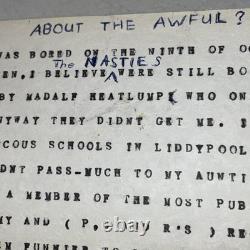 ABOUT THE AWFUL?
WAS BORED ON THE NINTH OF OC
The NASTIES
EN, I BELIEVE WERE STILL BO
BY MADALF HEATLUMP( WHO ON
NYWAY THEY DIDNT GET ME. I
COUS SCHOOLS IN LIDDYPOOL
DNT PASS-MUCH TO MY AUNTI
A MEMBER OF THE MOST PUB
MY AND ( P, G U R'S ) RE
EM FUNNIER TO
ebay